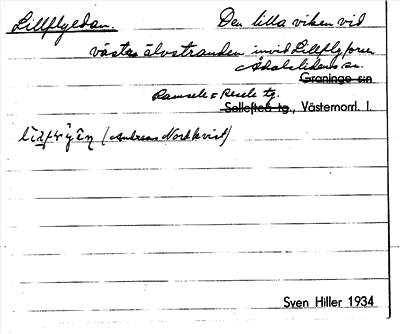 Lillflyedan. Den lilla viken vid
västra älvstranden invid Lillflyforsen
Ådalslidens sn.
Graninge sn
Ramsele o Resele tg.
Sollefteå tg., Västernorrl. l.
(Andreas Nordkvist)
Sven Hiller 1934